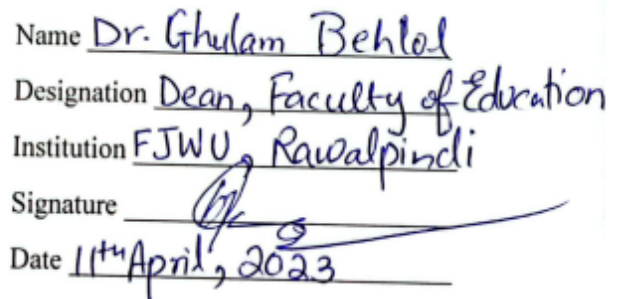 Name Dr. Ghulam Behlol
Designation Dean, Faculty of Education
Institution FJWU, Rawalpindi
Signature
Date 11th April, 2023